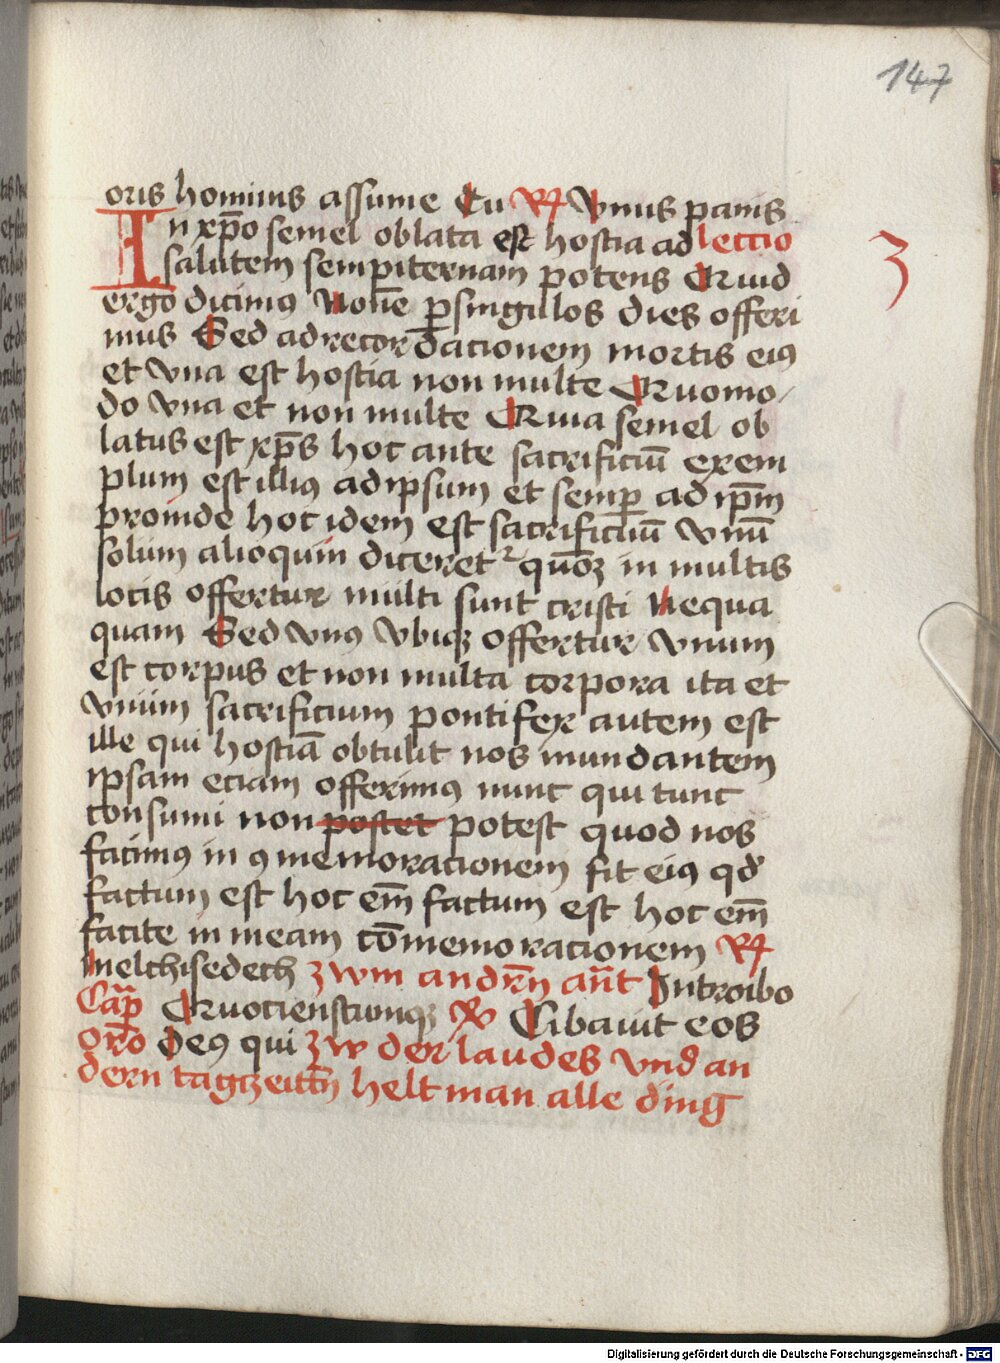 147
oris hominis assume Tu R Vnus panis
In xp̄o semel oblata est hostia ad lectio
3
salutem sempiternam potens Quid
ergo dicimꝯ None ꝑ singulos dies offeri
mus Sed ad recordacionem mortis eiꝯ
et vna est hostia non multe Quomo
do vna et non multe Quia semel ob
latus est xp̄s hoc ante sacrificiū exem
plum est illiꝯ ad ipsum et semꝑ ad ip̄m
proinde hoc idem est sacrificiū vnū
solum alioquin diceret᷑ qūoꝫ in multis
locis offertur multi sunt cristi Nequa
quam Sed vnꝯ vbiqꝫ offertur vnum
est corpus et non multa corpora ita et
vnum sacrificium pontifex autem est
ille qui hostiā obtulit nos mundantem
ipsam eciam offerimꝯ nunc qui tunc
consumi non postet potest quod nos
facimꝯ in ꝯmemoracionem fit eiꝯ qd̄
factum est hoc em̄ factum est hoc em̄
facite in meam cōmemoracionem R
Melchisedech zwm andrn̄ an̄t Introibo
Cap̄ Quociensc̄umqꝫ V Cibauit eos
ord̄o Deꝯ qui zw der laudes vnd an
dern tagczeittn̄ helt man alle ding
Digitalisierung gefördert durch die Deutsche Forschungsgemeinschaft - DFG